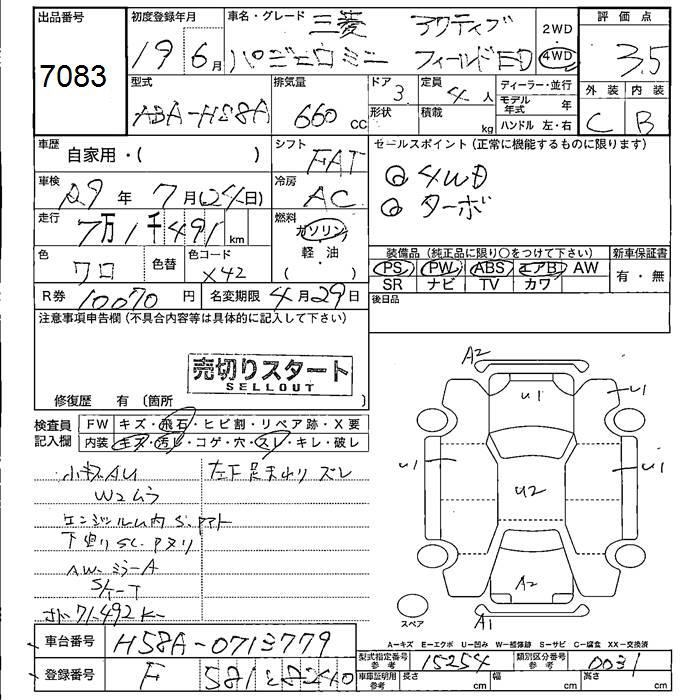 出品番号
7083
初度登録年月
19 6月
車名・グレード 三菱 アクティブ
パジェロミニ フィールドED
2WD
・
4WD
評価点
3.5
外装 内装
C B
型式
ABA-H58A
排気量
660 cc
ドア 3
形状
定員 4 人
積載 kg
ディーラー・並行
モデル年式 年
ハンドル 左・右
車歴
自家用・( )
シフト
FAT
セールスポイント(正常に機能するものに限ります)
◎4WD
◎ターボ
車検
29年 7月(24日)
冷房
AC
走行
7万1千491km
燃料
ガソリン
軽・油
( )
色
クロ
色替
色コード
X42
装備品(純正品に限り○をつけて下さい)
PS PW ABS エアB AW
SR ナビ TV カワ
新車保証書
有・無
R券 10070円
名変期限 4月29日
後日品
注意事項申告欄(不具合内容等は具体的に記入して下さい)
売切りスタート
SELLOUT
修復歴 有(箇所 )
検査員
記入欄
FW キズ・飛石・ヒビ割・リペア跡・X要
内装 キズ・汚レ・コゲ・穴・スレ・キレ・破レ
小キズAU
W2ムラ
エンジンルーム内 S.
下廻りSC.
AW-ミラーA
左下足まわり ズレ
71,492
A2
U1
U1
U1
U1
U2
A2
A1
スペア
A−キズ E−エクボ U−凹み W−補修跡 S−サビ C−腐食 XX−交換済
車台番号 H58A-0713779
登録番号 F 581
型式指定番号
参考
15254
類別区分番号
参考
0031
車庫証明用
参考
長さ cm
幅 cm
高さ cm